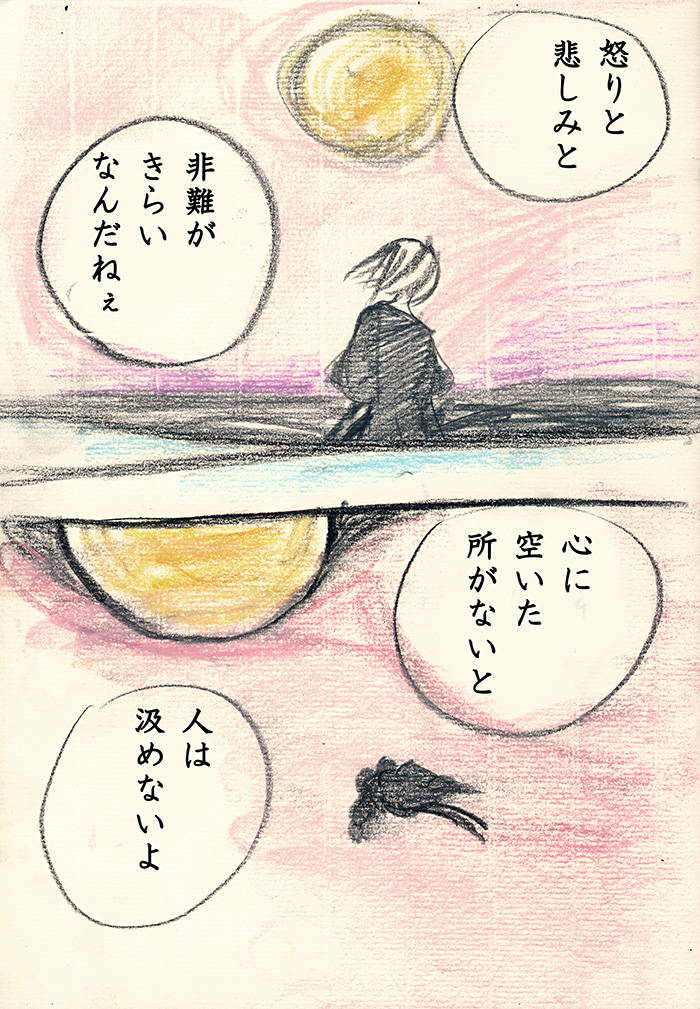 怒りと
悲しみと
非難が
きらい
なんだねぇ
心に
空いた
所がないと
人は
汲めないよ